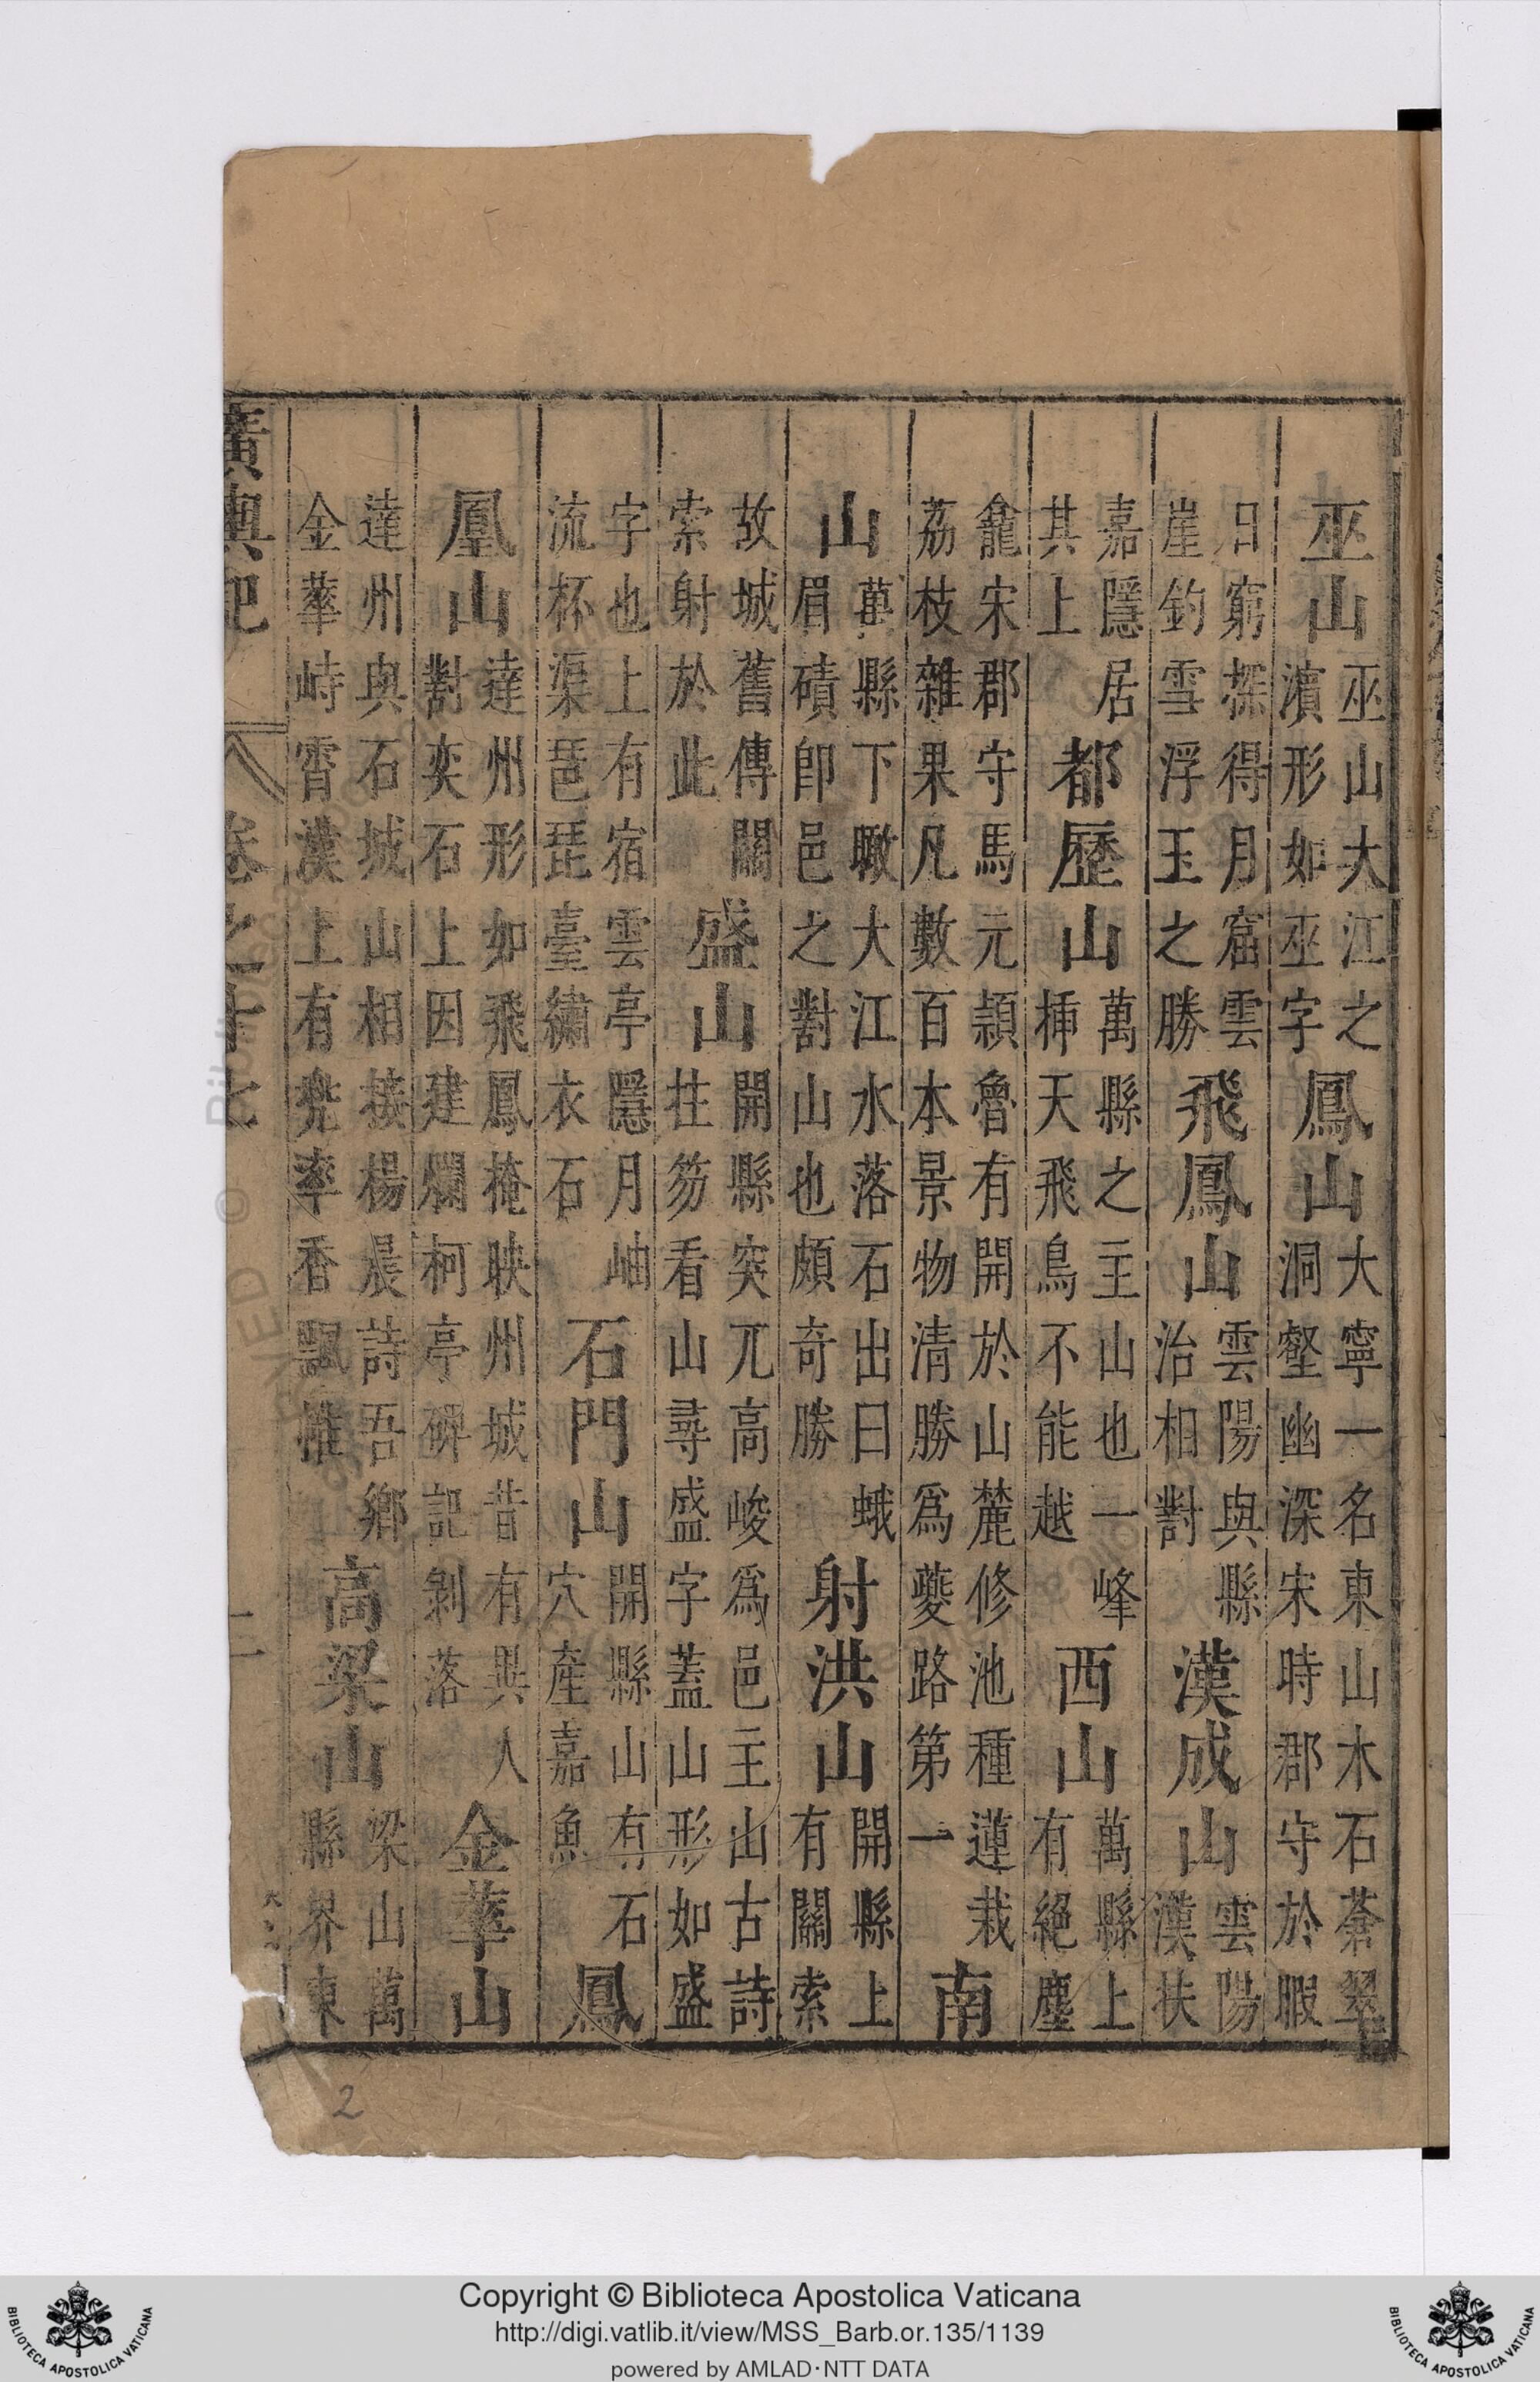 巫山巫山大江之濱形如巫字鳳山大寧一名東山木石蒼翠洞壑幽深宋時郡守於暇
日窮探得月窟雲崖釣雪浮玉之勝飛鳳山雲陽與縣治相對漢成山雲陽漢扶
嘉隱居其上都歷山萬縣之主山也一峰挿天飛鳥不能越西山萬縣上有絕塵
龕宋郡守馬元頴魯有開於山麓修池種蓮栽荔枝雜果凡數百本景物清勝爲夔路第一南
山萬縣下瞰大江水落石出曰蛾眉磧卽邑之對山也頗奇勝射洪山開縣上有關索
故城舊傳關索射於此盛山開縣突兀高峻爲邑主山古詩拄笏看山尋盛字蓋山形如盛
字也上有宿雲亭隱月岫流杯渠琵琶臺繡衣石石門山開縣山有石穴產嘉魚鳳
凰山達州形如飛鳳掩映州城昔有異人對奕石上因建爛柯亭碑記剝落金華山
達州與石城山相接楊晨詩吾鄉金華峙霄漢上有兠率香飄高梁山梁山萬縣界東
廣輿記 卷之十七 二
2
Copyright © Biblioteca Apostolica Vaticana
http://digi.vatlib.it/view/MSS_Barb.or.135/1139
powered by AMLAD·NTT DATA
BIBLIOTECA APOSTOLICA VATICANA
BIBLIOTECA APOSTOLICA VATICANA